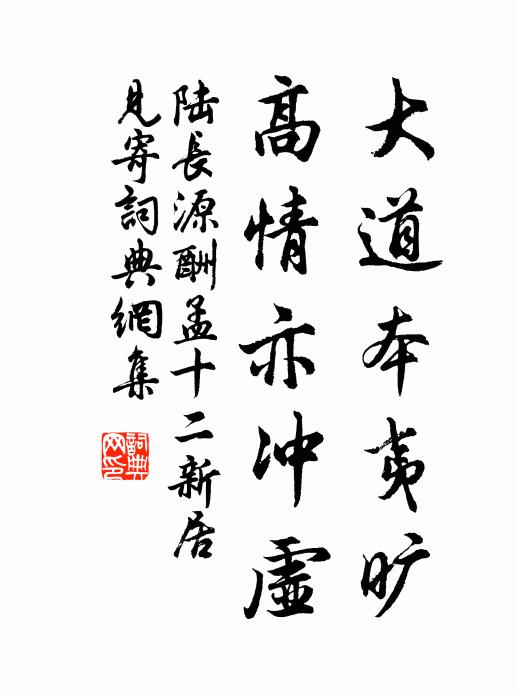 大道本夷旷
高情亦冲虚
陆長源酬孟十二新居
見寄詞典網集
詞典網印